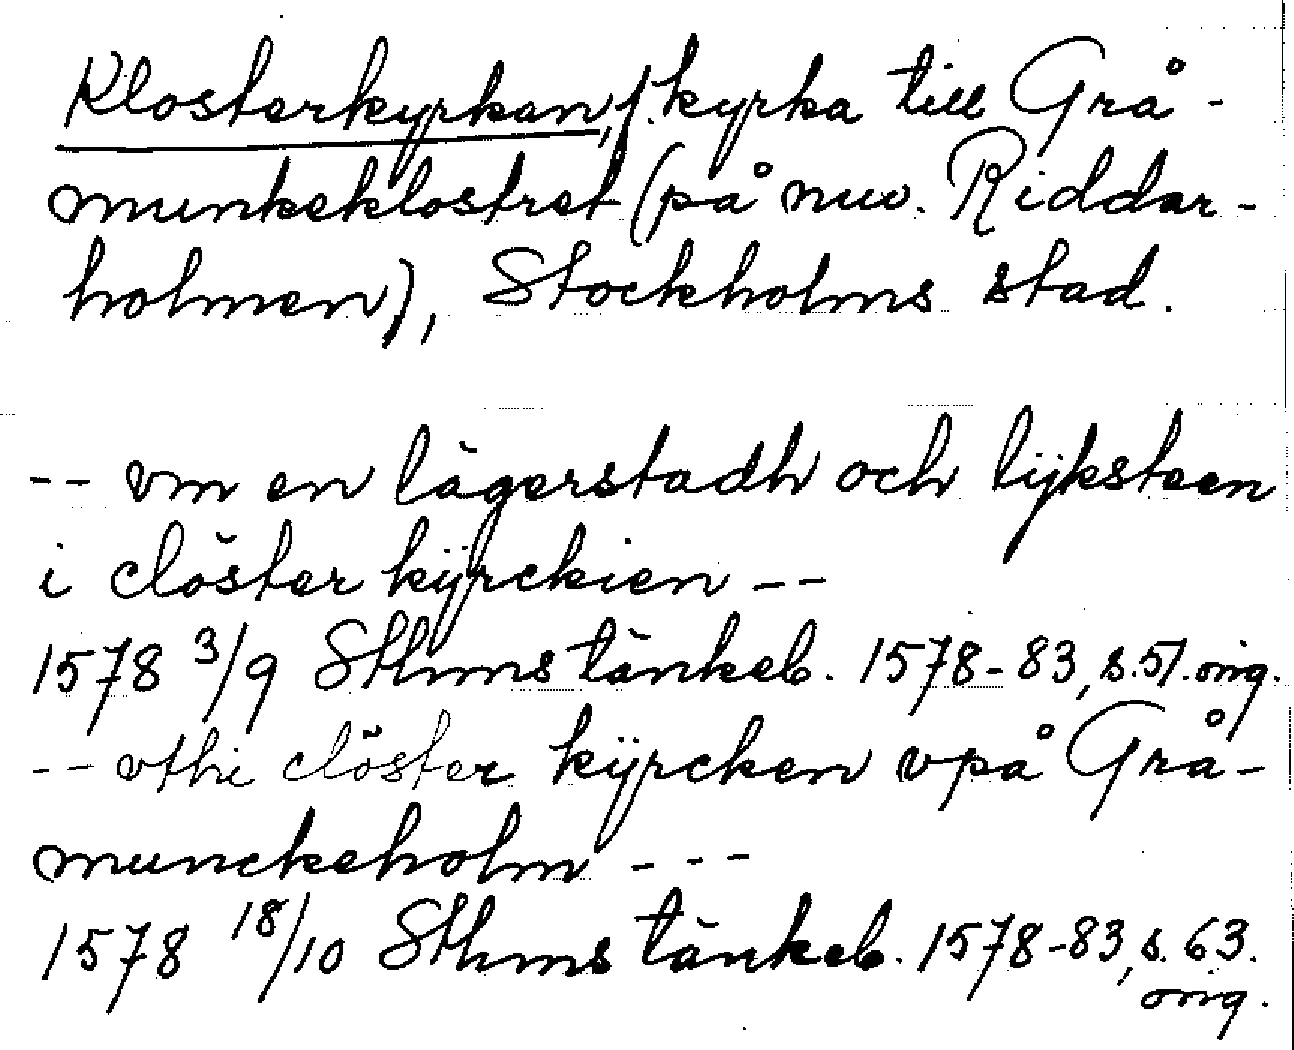 Klosterkyrkan, f. kyrka till Grå-
munkeklostret (på nuv. Riddar-
holmen), Stockholms stad.
-- vm en lägerstadh och lijksteen
i clöster kÿrckien --
1578 3/9 Sthms tänkeb. 1578-83, s. 51. orig.
-- vthi clöster kÿrcken vpå Grå-
munckeholm ---
1578 18/10 Sthms tänkeb. 1578-83, s. 63.
orig.